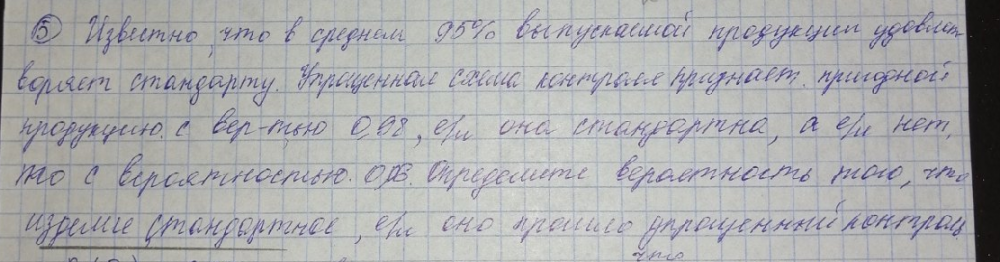 ⑤ Известно, что в среднем 95% выпускаемой продукции удовлет
воряет стандарту. Упрощенная схема контроля признает пригодной
продукцию с вер-тью 0,98, е/и она стандартна, а е/и нет,
то с вероятностью 0,03. Определите вероятность того, что
изделие стандартное, е/и оно прошло упрощенный контроль
что